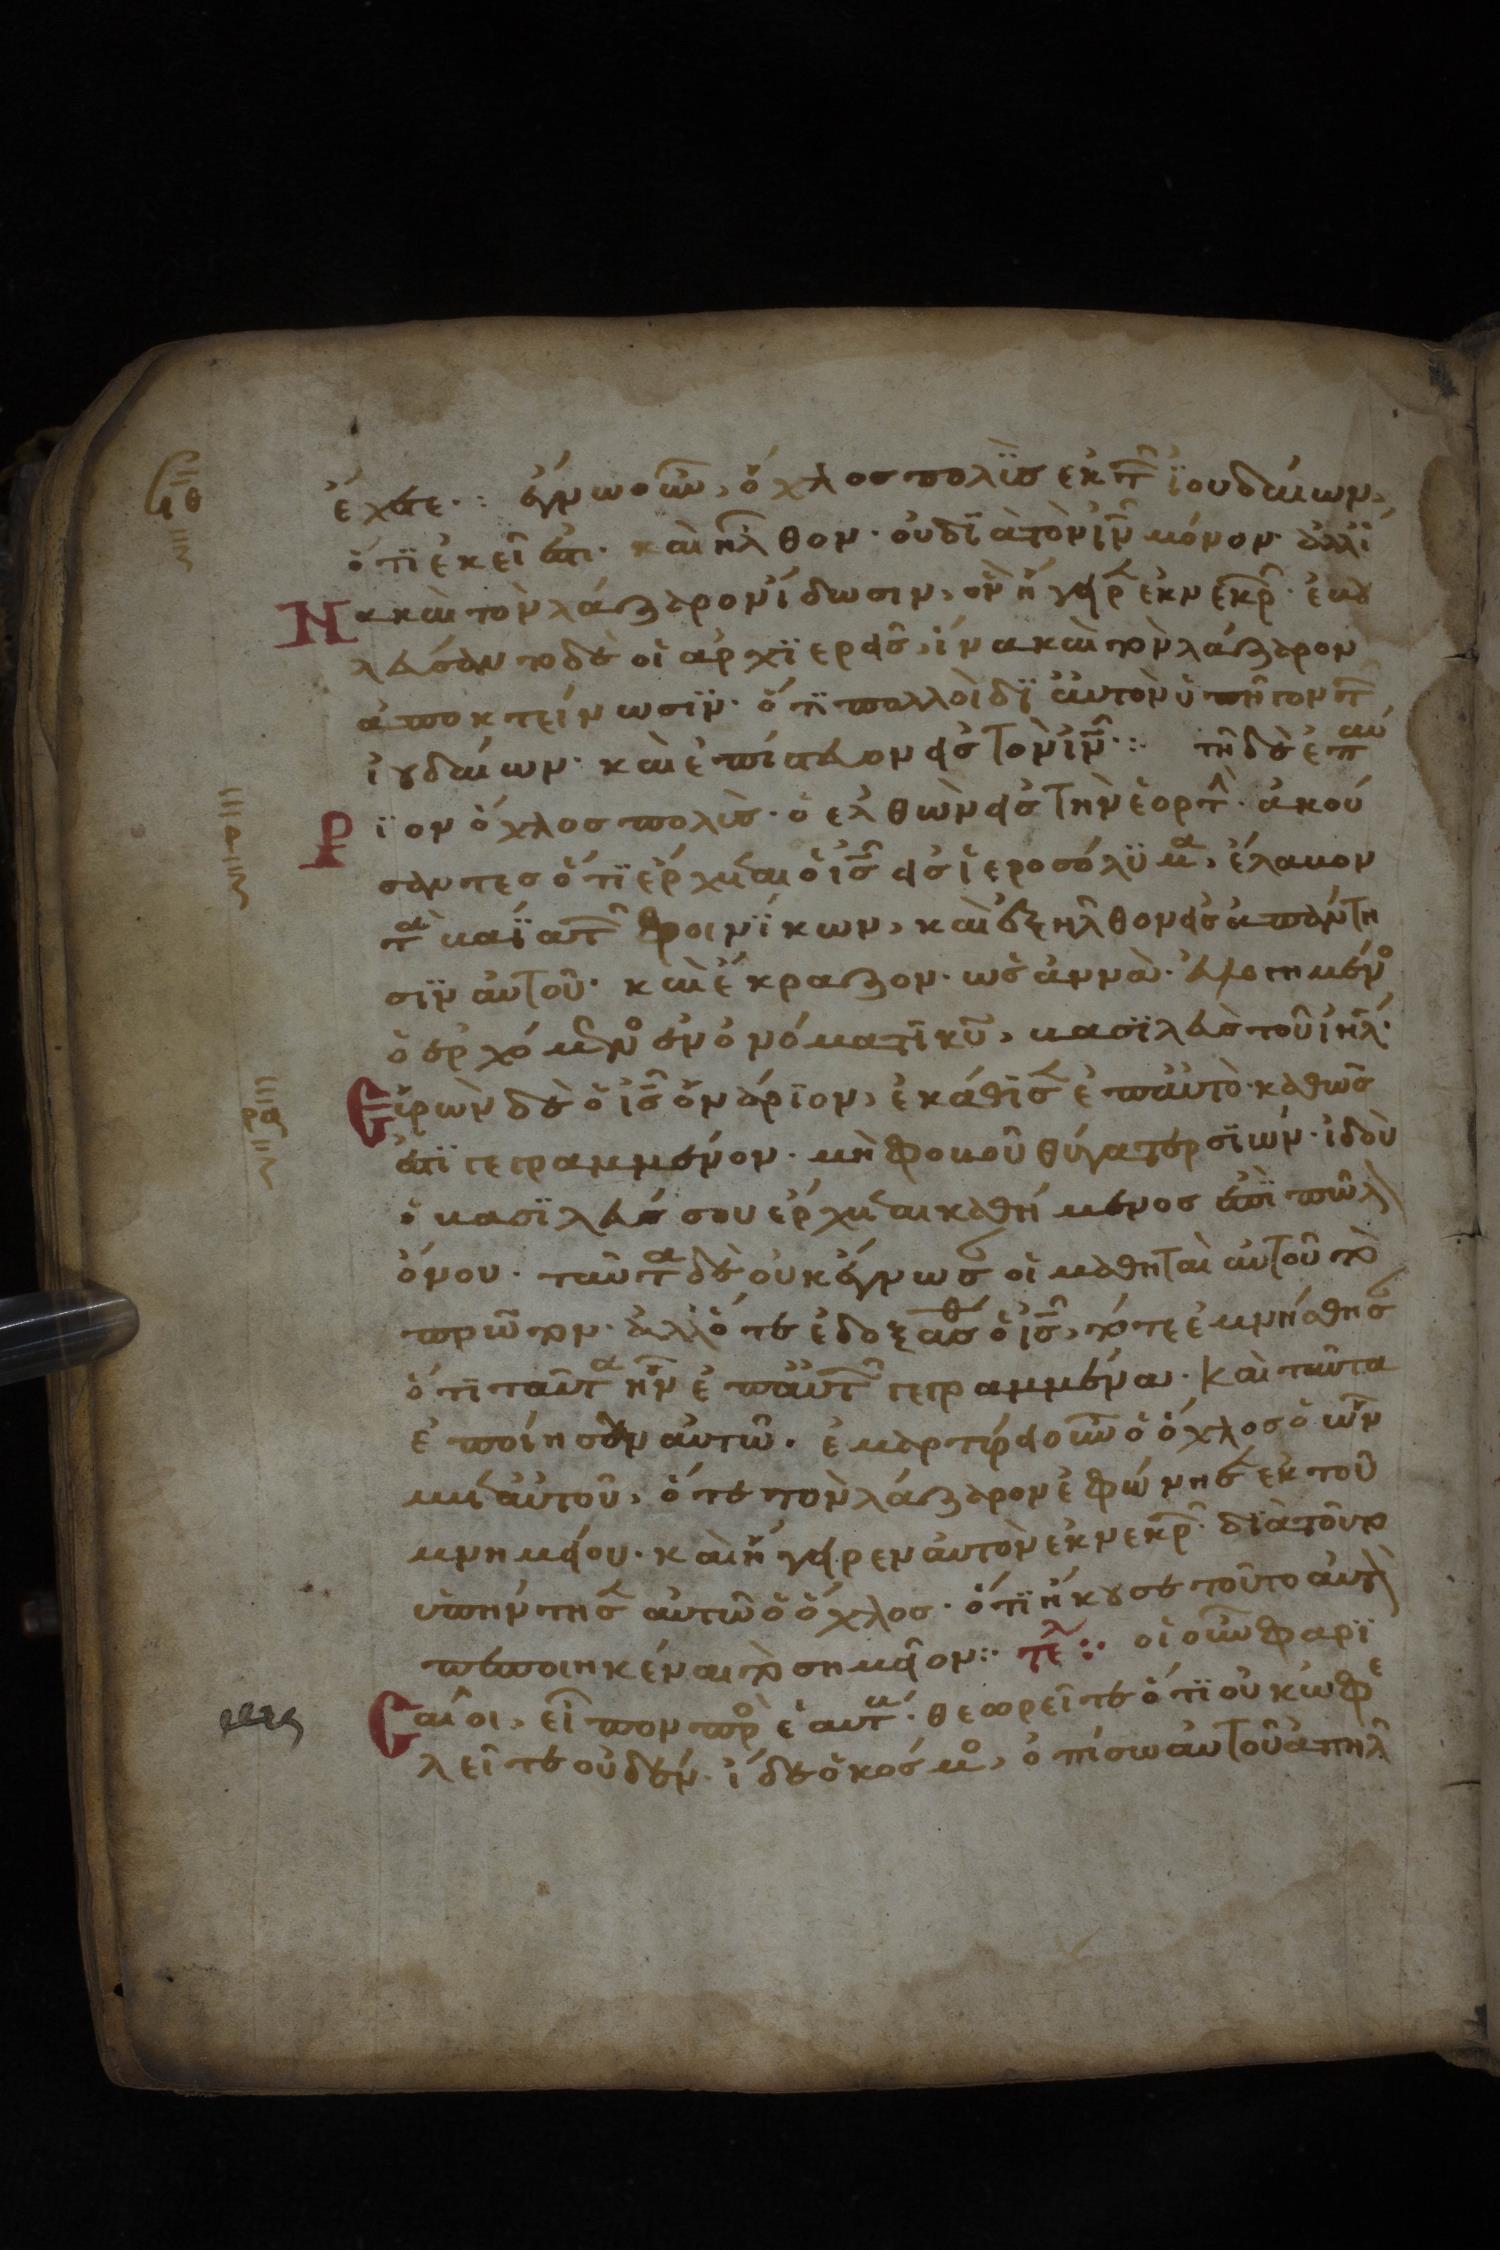 ἔχετε·: ἔγνω οὖν, ὄχλοσ πολϊσ ἐκ τ ϊουδαίων,
ὅτϊ ἐκεῖ ἐστι· καὶ ἦλθον· οὐ δϊὰ τὸν ἰν μόνον· ἀλλ ϊ
Να καὶ τὸν λάζαρον ἴδωσιν, ὃν ἤγειρ ἐκ νεκρ· ἐβου
λεύσαντο δὲ οἱ ἀρχϊερεῖσ, ἵνα καὶ τὸν λάζαρον
ἀποκτείνωσϊν· ὅτϊ πολλοὶ δϊ αὐτὸν ὑπῆγον τ
ἰουδαίων· καὶ ἐπίστευον εἰσ τὸν ἰν·: τῆ δὲ ἐπαύ
Ρϊον ὄχλοσ πολὺσ· ὁ ἐλθὼν εἰσ τὴν ἑορτ· ἀκού
σαντεσ ὅτϊ ἔρχεται ὁ ισ εἰσ ἱεροσόλϋμα, ἔλαβον
τὰ βαΐα τ φοινϊκων, καὶ ἐξῆλθον εἰσ ἀπάντη
σϊν αὐτοῦ· καὶ ἔκραζον· ὡσἀννὰ· εὐλογημένοσ
ὁ ἐρχόμενοσ ἐν ὀνόματϊ κυ, βασϊλεὺσ τοῦ ιηλ·
Εὑρὼν δὲ ὁ ισ ὀνάρϊον, ἐκάθϊσ ἐπ αὐτὸ· καθώσ
ἐστϊ γεγραμμένον· μὴ φοβοῦ θύγατερ σϊών· ἰδοὺ
ὁ βασϊλεύσ σου ἔρχεται καθήμενοσ ἐπϊ πῶλ
ὄνου· ταῦτα δὲ οὐκ ἔγνωσ οἱ μαθηταὶ αὐτοῦ τὸ
πρῶτον· ἀλλ ὅτε ἐδοξάσθ ὁ ισ, τότε ἐμνήσθησ
ὅτϊ ταῦτα ἦν ἐπ αὐτ γεγραμμένα· καὶ ταῦτα
ἐποίησαν αὐτῶ· ἐμαρτύρει οὖν ὁ ὄχλοσ ὁ ὢν
μετ αὐτοῦ, ὅτε τὸν λάζαρον ἐφώνησ ἐκ τοῦ
μνημείου· καὶ ἤγειρεν αὐτὸν ἐκ νεκρ· δϊὰ τοῦτο
ὑπήντησ αὐτῶ ὁ ὄχλοσ· ὅτϊ ἤκουσε τοῦτο αὐτ
πεποιηκέναι τὸ σημεῖον·: τελ:· οἱ οὖν φαρϊ
Σαῖοι, εἶπον πρὸσ ἑαυτ· θεωρεῖτε ὅτϊ οὐκ ὠφε
λεῖτε οὐδέν· ἴδε ὁ κόσμοσ, ὀπίσω αὐτοῦ ἀπῆλ